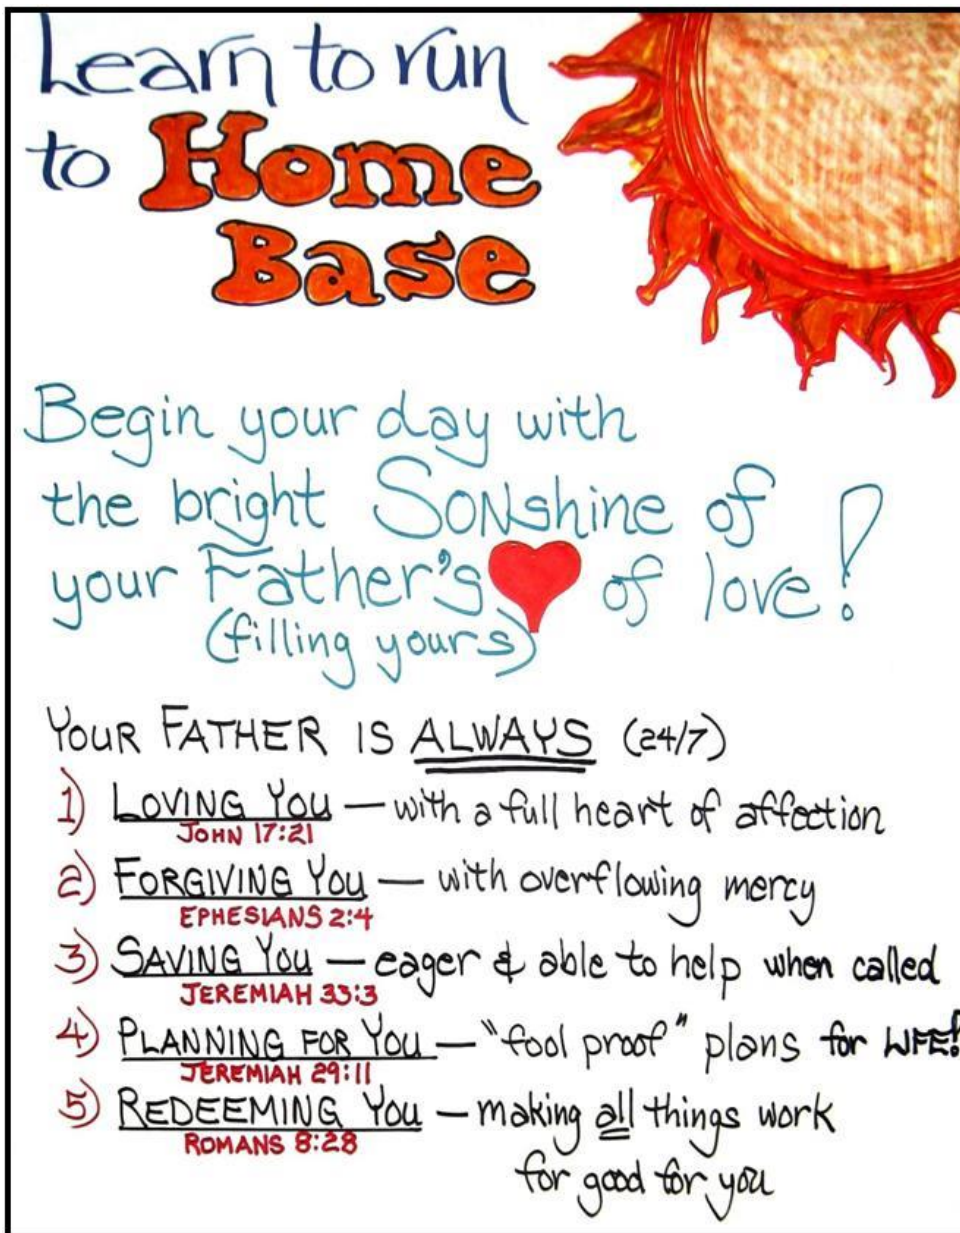 Learn to run
to Home
Base
Begin your day with
the bright SONshine of
your Father's of love!
(filling yours)
YOUR FATHER IS ALWAYS (24/7)
1) LOVING YOU — with a full heart of affection
JOHN 17:21
2) FORGIVING YOU — with overflowing mercy
EPHESIANS 2:4
3) SAVING YOU — eager & able to help when called
JEREMIAH 33:3
4) PLANNING FOR YOU — "fool proof" plans for LIFE!
JEREMIAH 29:11
5) REDEEMING YOU — making all things work
ROMANS 8:28
for good for you